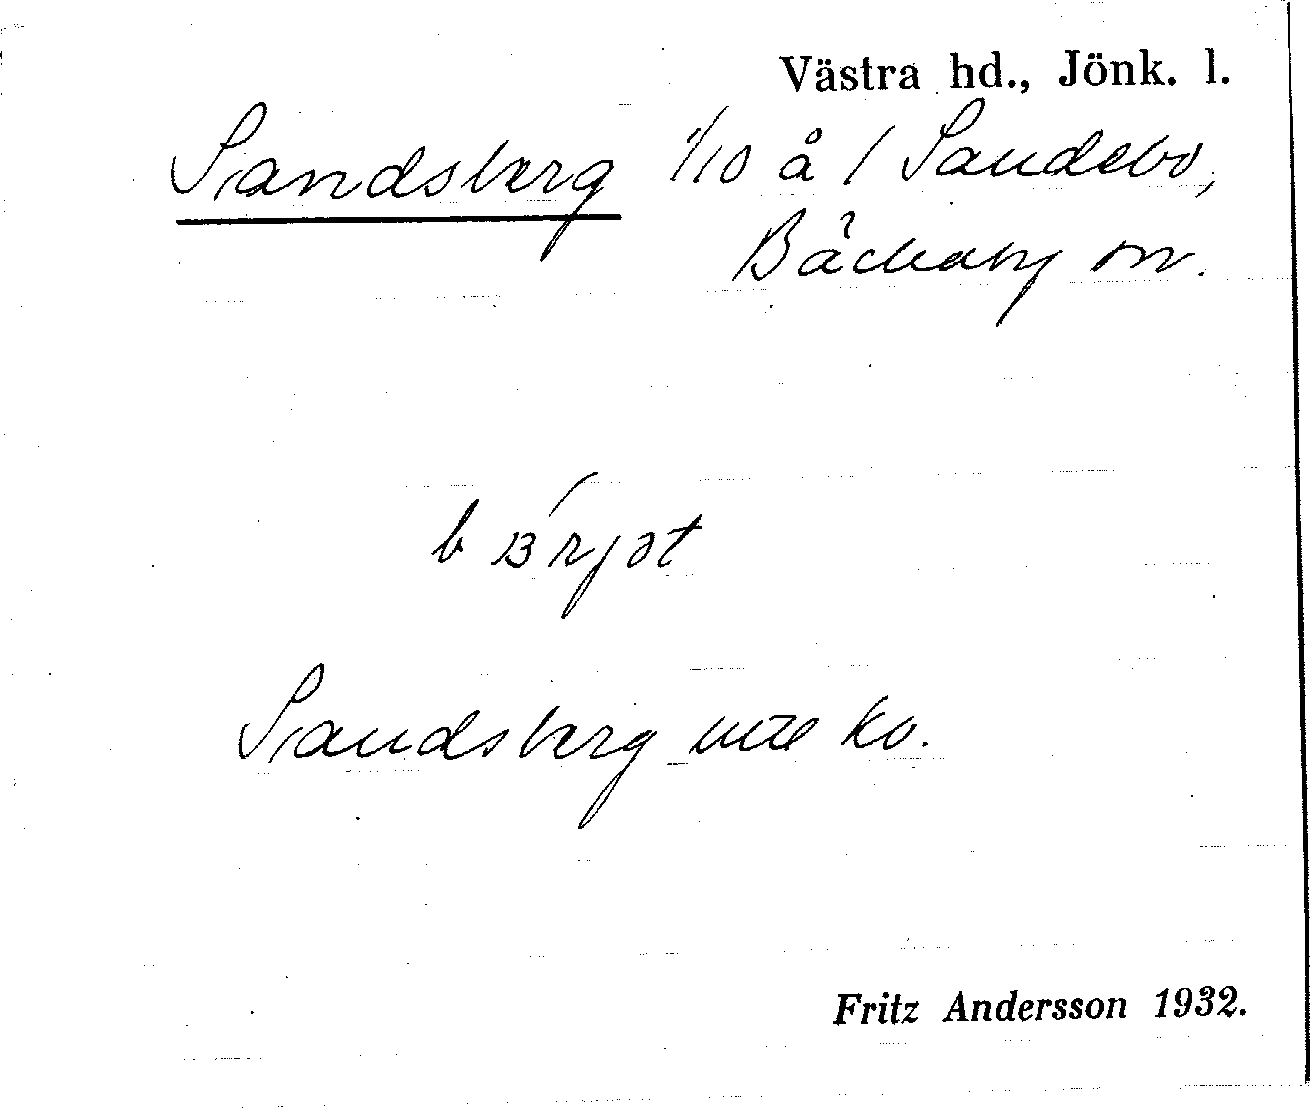 Västra hd., Jönk. l.
Sandsberg 1/10 å 1 Sandebo,
Bäckaby sn.
Sandsberg ute ko.
Fritz Andersson 1932.